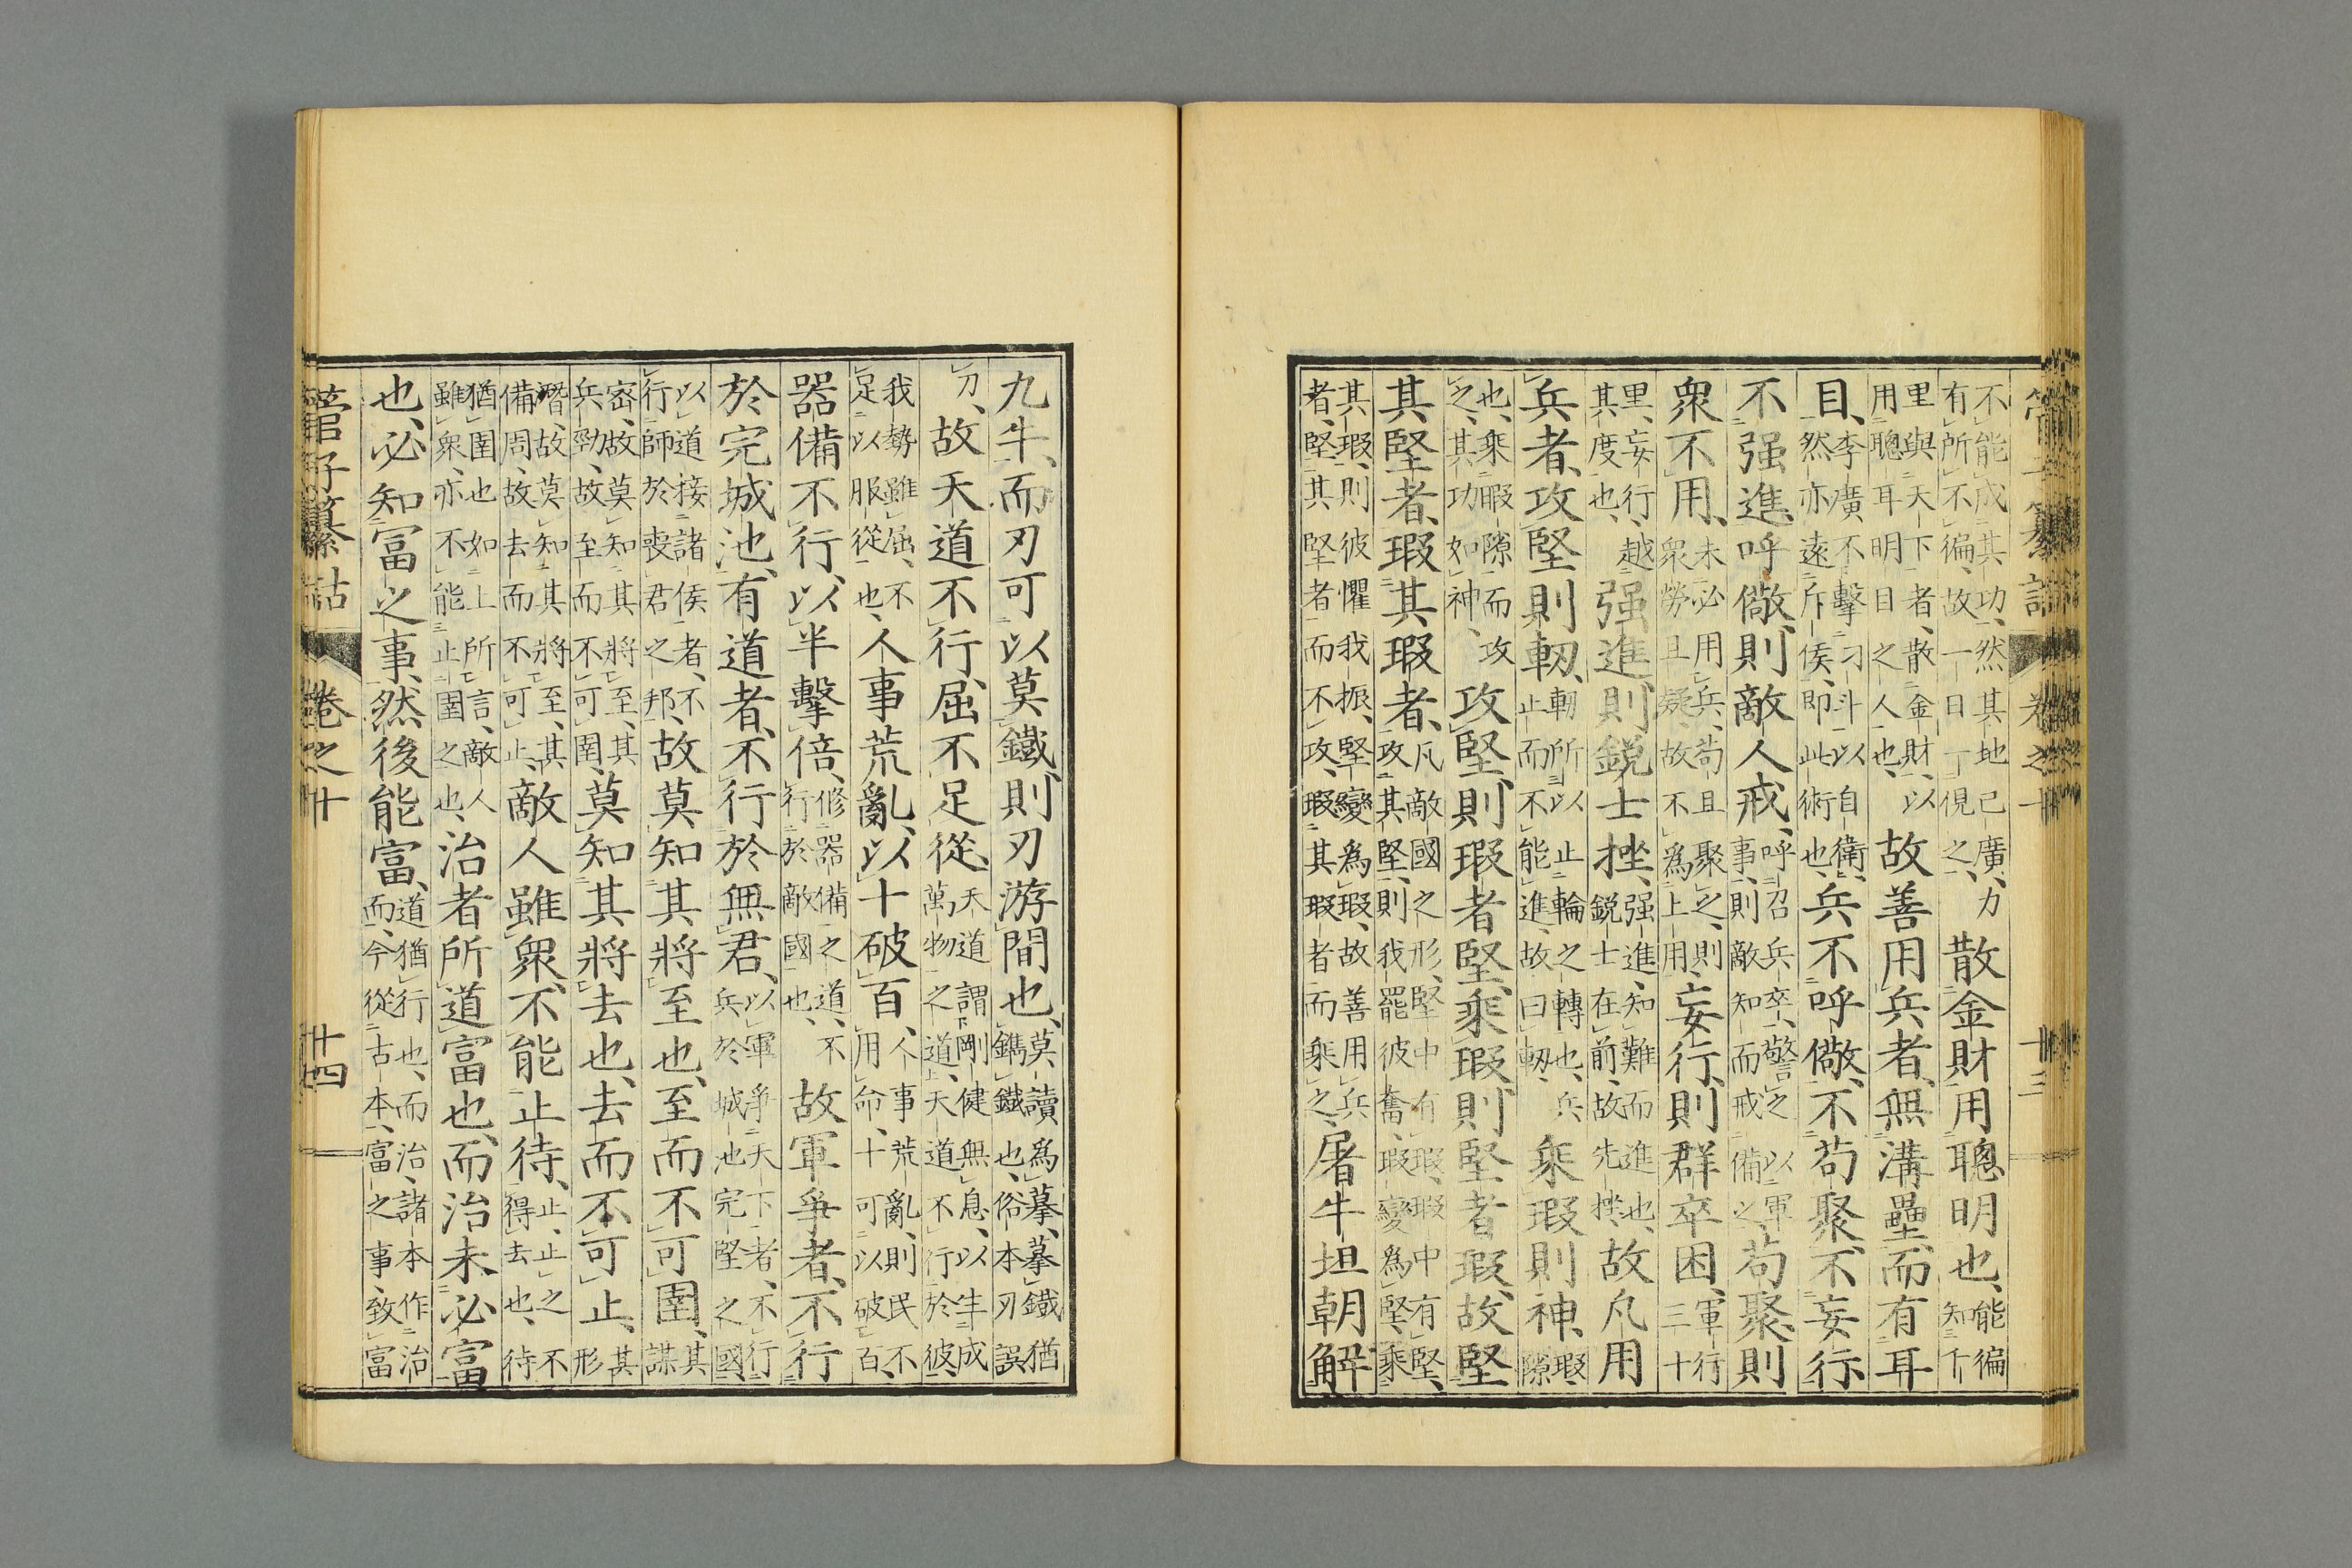 不能成其功、然其地已廣、力有所不徧、故一日一俔之、散金財用聰明也、能徧知千
里與天下者、散金財、以用聰耳明目之人也、故善用兵者、無溝壘、而有耳
目、李廣不擊刁斗以自衛、然亦遠斥候、即此術也、兵不呼儆、不苟聚、不妄行
不强進、呼儆、則敵人戒、呼召兵卒、警之以軍事、則敵知而戒備之、苟聚、則
衆不用、未必用兵、苟且聚之、則衆勞且疑、故不爲上用、妄行、則群卒困、軍行三十
里、妄行、越其度也、强進、則鋭士挫、强進、知難而進也、鋭士在前、故先挫、故凡用
兵者、攻堅則軔、軔所以止輪之轉也、兵止而不能進、故曰軔、乘瑕則神、瑕、隙
也、乘暇隙而攻之、其功如神、攻堅、則瑕者堅、乘瑕、則堅者瑕、故堅
其堅者、瑕其瑕者、凡敵國之形、堅中有瑕、瑕中有堅、攻其堅、則我罷彼奮、瑕變爲堅、乘
其瑕、則彼懼我振、堅變爲瑕、故善用兵者、堅其堅者而不攻、瑕其瑕者而乘之、屠牛坦朝解
管子纂詁 卷之十 十三
九牛、而刃可以莫鐵、則刃游間也、莫讀爲摹、摹鐵猶鐫鐵也、俗本刃誤
刀、故天道不行、屈不足從、天道謂剛健無息、以生成萬物之道、天道不行於彼、
我勢雖屈、不足以服從也、人事荒亂、以十破百、人事荒亂、則民不用命、十可以破百、
器備不行、以半擊倍、修器備之道、不行於敵國也、故軍爭者、不行
於完城池、有道者、不行於無君、以軍爭天下者、不行兵於城池完堅之國、
以道接諸侯者、不行師於喪君之邦、故莫知其將至也、至而不可圉、其謀
密、故莫知其將至、其兵勁、故至而不可圉、莫知其將去也、去而不可止、其形
潛、故莫知其將至、其備周、故去而不可止、敵人雖衆、不能止待、止、止之不得去也、待
猶圉也、如上所言、敵人雖衆、亦不能止圉之也、治者所道富也、而治未必富
也、必知富之事、然後能富、道猶行也、而治、諸本作治而、今從古本、富之事、致富
管子纂詁 卷之十 十四